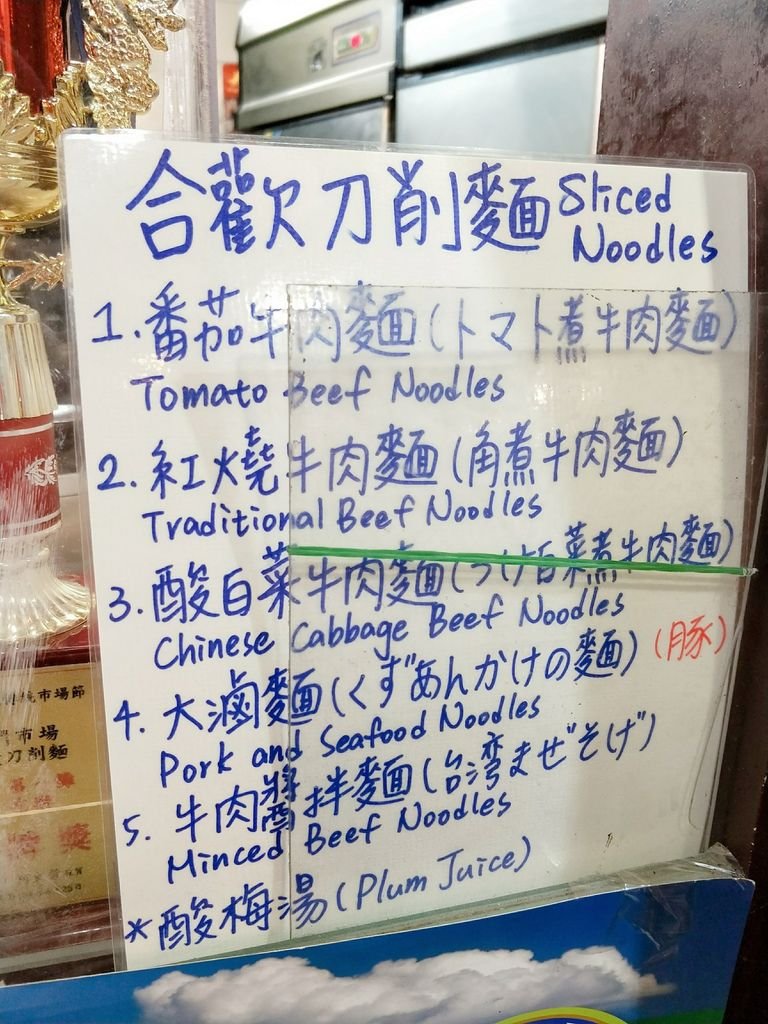 合歡刀削麵 Sliced Noodles
1. 番茄牛肉麵(トマト煮牛肉麵)
Tomato Beef Noodles
2. 紅燒牛肉麵(角煮牛肉麵)
Traditional Beef Noodles
3. 酸白菜牛肉麵(つけ白菜煮牛肉麵)
Chinese Cabbage Beef Noodles
4. 大滷麵(くずあんかけの麵) (豚)
Pork and Seafood Noodles
5. 牛肉醬拌麵(台湾まぜそば)
Minced Beef Noodles
* 酸梅湯(Plum Juice)
市場節
市場
刀削麵
獎